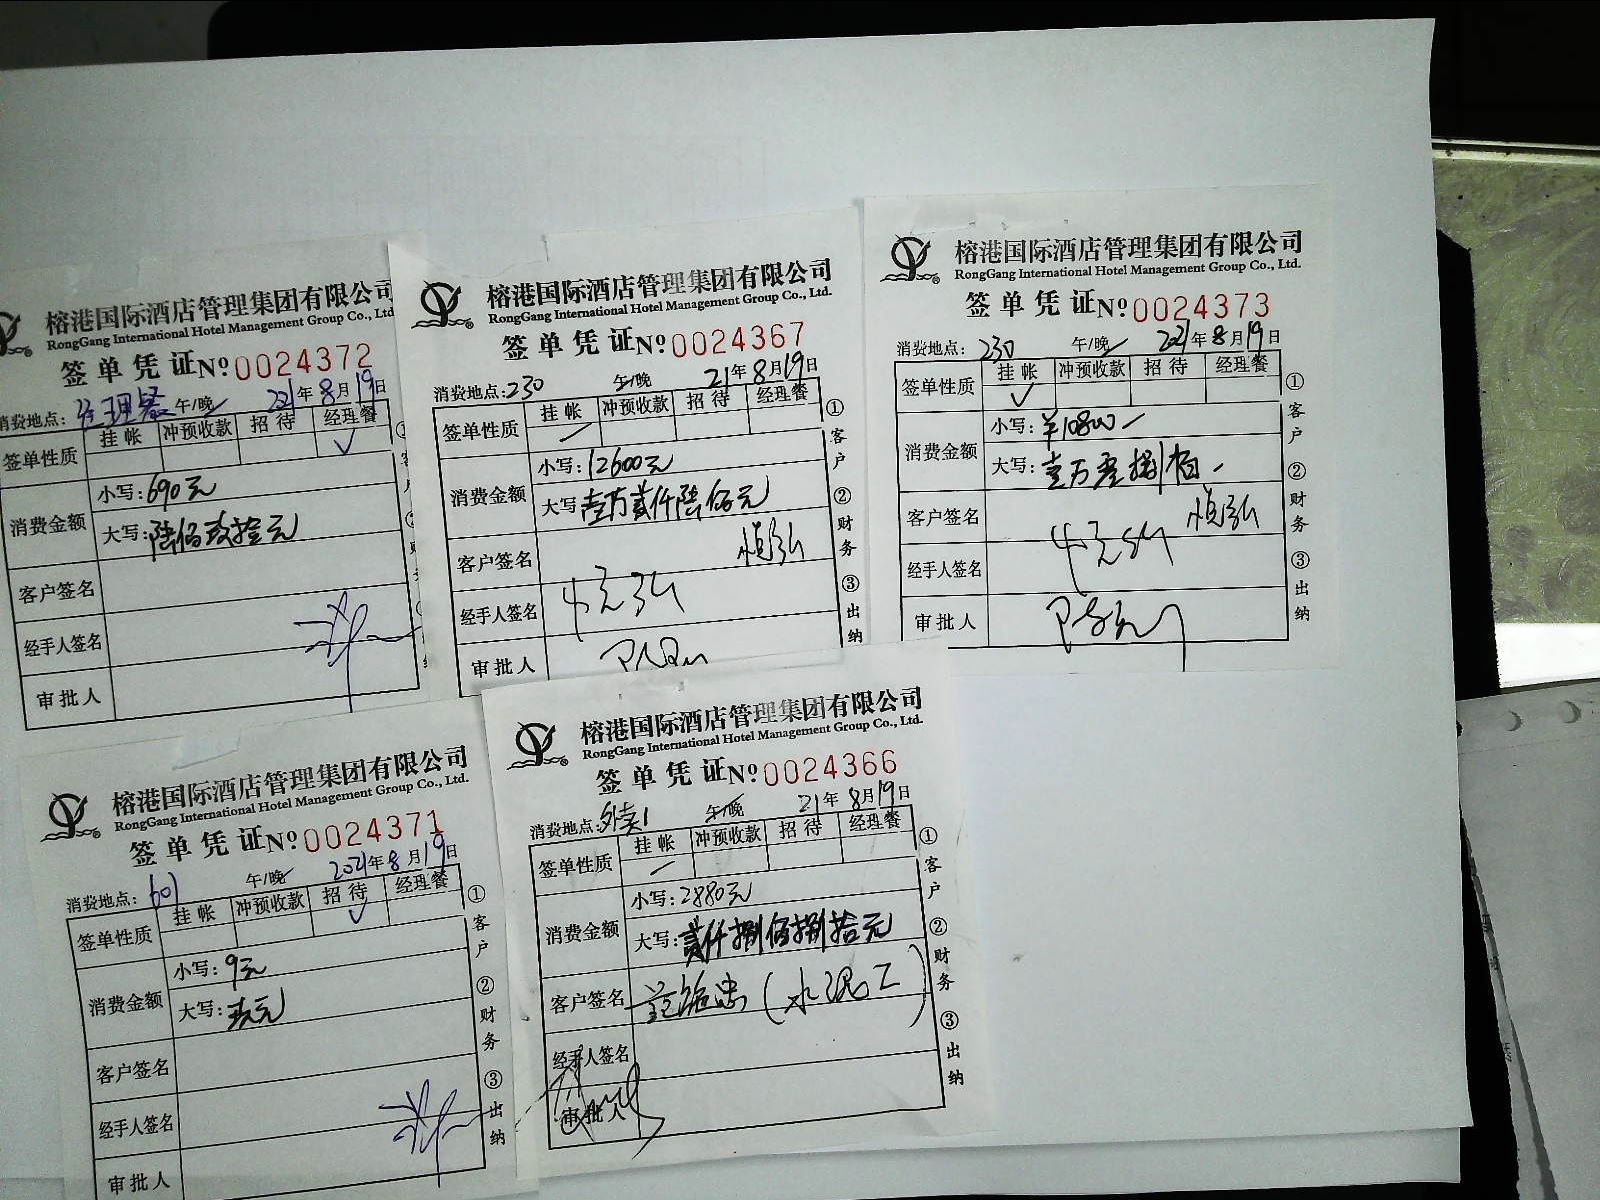 榕港国际酒店管理集团有限公司
RongGang International Hotel Management Group Co., Ltd
签单凭证 Nº 0024372
消费地点: 经理餐 午/晚 2021年8月19日
签单性质 挂帐 冲预收款 招待 经理餐
✓
消费金额 小写:690元
大写:陆佰玖拾元
客户签名
经手人签名
审批人
榕港国际酒店管理集团有限公司
RongGang International Hotel Management Group Co., Ltd.
签单凭证 Nº 0024367
消费地点:230 午/晚 21年8月19日
签单性质 挂帐 冲预收款 招待 经理餐
消费金额 小写:12600元
大写 壹万贰仟陆佰元
客户签名 恒弘
经手人签名
审批人
① 客户 ② 财务 ③ 出纳
榕港国际酒店管理集团有限公司
RongGang International Hotel Management Group Co., Ltd.
签单凭证 Nº 0024373
消费地点: 230 午/晚 2021年8月19日
签单性质 挂帐 冲预收款 招待 经理餐
✓
消费金额 小写:¥10800
大写: 壹万零捌佰
客户签名 恒弘
经手人签名
审批人
① 客户 ② 财务 ③ 出纳
榕港国际酒店管理集团有限公司
RongGang International Hotel Management Group Co., Ltd.
签单凭证 Nº 0024371
消费地点: 601 午/晚 2021年8月19日
签单性质 挂帐 冲预收款 招待 经理餐
✓
消费金额 小写:9元
大写:玖元
客户签名
经手人签名
审批人
① 客户 ② 财务 ③ 出纳
榕港国际酒店管理集团有限公司
RongGang International Hotel Management Group Co., Ltd.
签单凭证 Nº 0024366
消费地点:外卖1 午/晚 21年8月19日
签单性质 挂帐 冲预收款 招待 经理餐
消费金额 小写:2880元
大写:贰仟捌佰捌拾元
客户签名 (水泥工)
经手人签名
审批人
① 客户 ② 财务 ③ 出纳